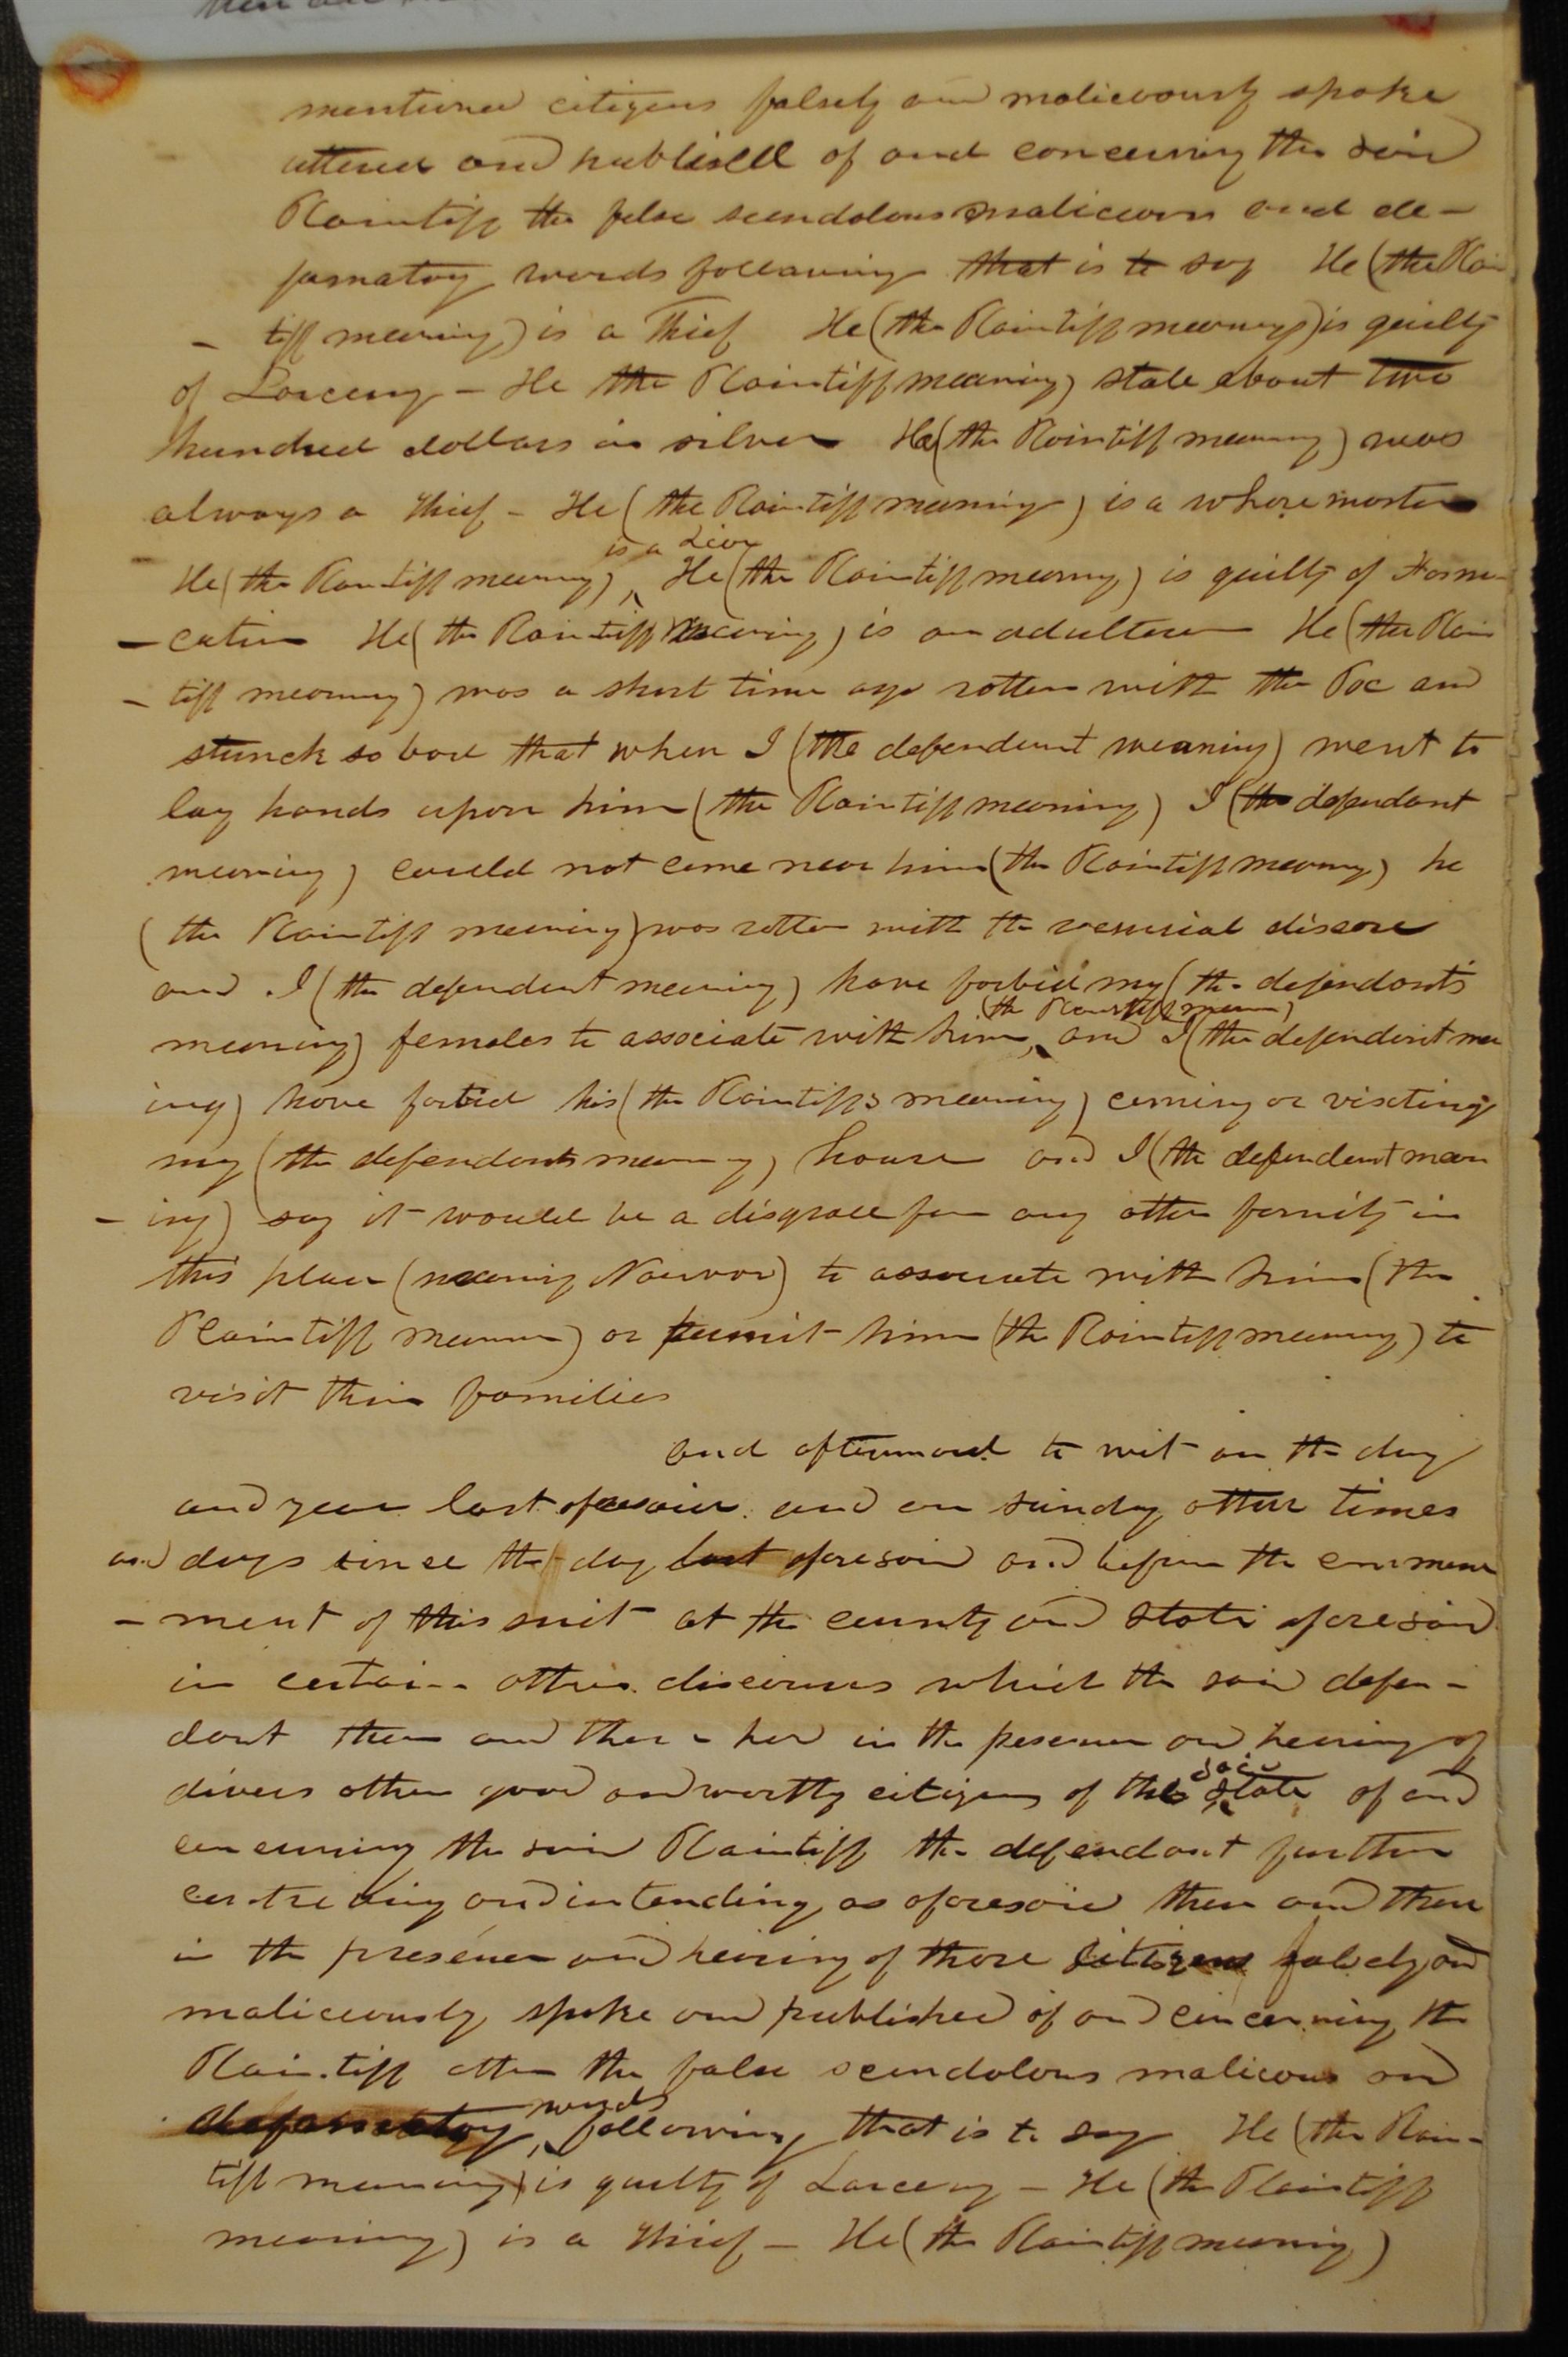 mentioned citizens falsely and maliciously spoke
uttered and publised of and concerning the said
Plaintiff the false scandalous malicious and de-
famatory words following that is to say He (the Plain
- tiff meaning) is a Thief He (the Plaintiff meaning) is guilty
of Larceny - He the Plaintiff meaning) stole about two
hundred dollars in silver He (the Plaintiff meaning) was
always a thief - He (the Plaintiff meaning) is a whore master
is a Liar
He (the Plaintiff meaning), He (the Plaintiff meaning) is guilty of Forni
- cation He (the Plaintiff meaning) is an adulterer He (the Plain
- tiff meaning) was a short time ago rotten with the Pox and
stunck so bad that when I (the defendant meaning) went to
lay hands upon him (the Plaintiff meaning) I (the defendant
meaning) could not come near him (the Plaintiff meaning) he
(the Plaintiff meaning) was rotten with the venerial disease
and I (the defendent meaning) have forbid my (the defendants
(the Plaintiff meaning)
meaning) females to associate with him, and I (the defendent mean
ing) have forbid his (the Plaintiffs meaning) coming or visiting
my (the defendants meaning) house and I (the defendent mean
- ing) say it would be a disgrace for any other family in
this place (meaning Nauvoo) to associate with him (the
Plaintiff meaning) or permit him (the Plaintiff meaning) to
visit their families
and afterward to wit on the day
and year last aforesaid and on sundry other times
and days since the day last aforesaid and before the commence
- ment of this suit at the county and State aforesaid
in certain other discourses which the said defen-
dant then and there had in the presence and hearing of
said
divers other good and worthy citizens of the State of and
concerning the said Plaintiff the defendant further
contreving and intending as aforesaid then and there
in the presence and hearing of those citizens falsely and
maliceously spoke and published of and concerning the
Plaintiff other the false scandalous malicous and
words
defamatory, following that is to say He (the Plain-
tiff meaning) is guilty of Larceny - He (the Plaintiff
meaning) is a thief - He (the Plaintiff meaning)